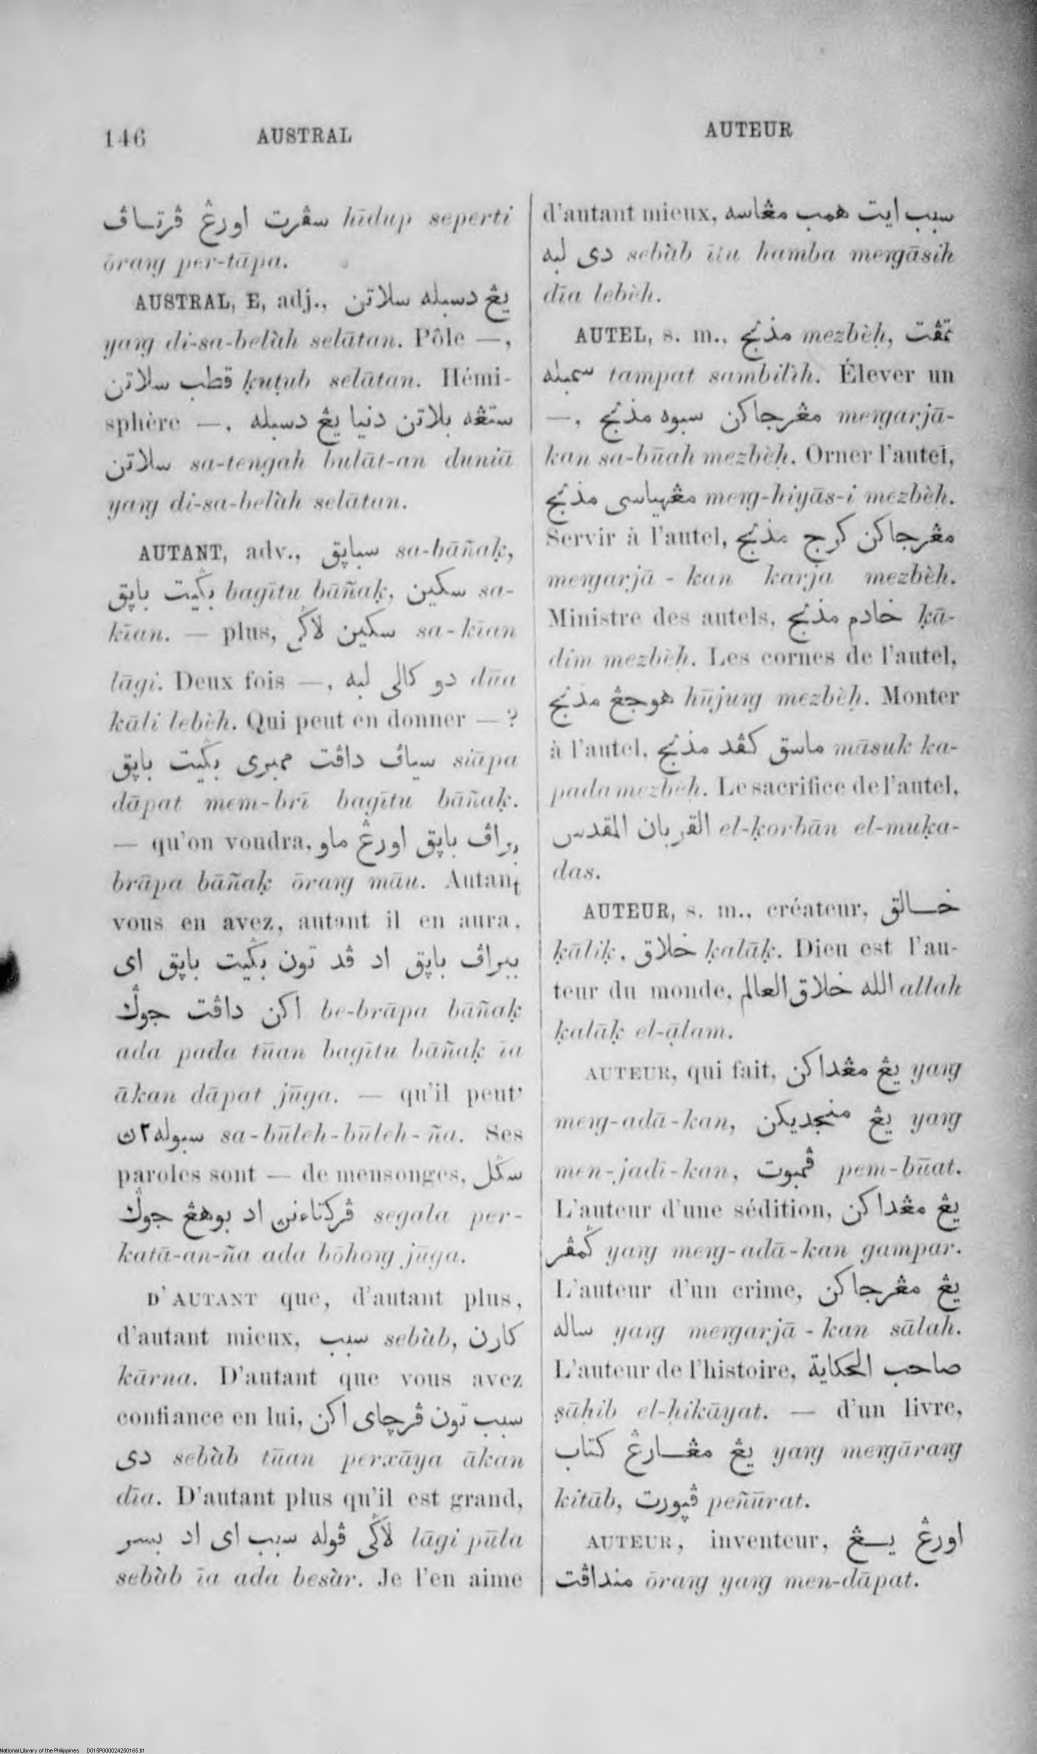 146 AUSTRAL
AUTEUR
سڤرت اورڠ ڤرتاڤ hīdup seperti
ōraŋ per-tāpa.
AUSTRAL, E, adj., يڠ دسبله سلاتن
yaŋ di-sa-belàh selātan. Pôle —,
قطب سلاتن ḳuṭub selātan. Hémi-
sphère —, ستڠه بلاتن دنيا يڠ دسبله
سلاتن sa-tengah bulāt-an duniā
yaŋ di-sa-belàh selātan.
AUTANT, adv., سباڽق sa-bāñaḳ,
بݢيت باڽق bagītu bāñaḳ, سكين sa-
kīan. — plus, سكين لاݢي sa-kīan
lāgi. Deux fois —, دو كالي لبه dūa
kāli lebèh. Qui peut en donner — ?
سياڤ داڤت ممبري بݢيت باڽق siāpa
dāpat mem-brī bagītu bāñaḳ.
— qu'on voudra, براڤ باڽق اورڠ ماو
brāpa bāñaḳ ōraŋ māu. Autant
vous en avez, autant il en aura,
ببراڤ باڽق اد ڤد تون بݢيت باڽق اي
اكن داڤت جوݢ be-brāpa bāñaḳ
ada pada tūan bagītu bāñaḳ īa
ākan dāpat jūga. — qu'il peut
سبوله٢ن sa-būleh-būleh-ña. Ses
paroles sont — de mensonges, سݢل
ڤركتاءنن اد بوهڠ جوݢ segala per-
katā-an-ña ada bōhoŋ jūga.
D'AUTANT que, d'autant plus,
d'autant mieux, سبب sebàb, كارن
kārna. D'autant que vous avez
confiance en lui, سبب تون ڤرچاي اكن
دي sebàb tūan perxāya ākan
dīa. D'autant plus qu'il est grand,
لاݢي ڤوله سبب اي اد بسر lāgi pūla
sebàb īa ada besàr. Je l'en aime
d'autant mieux, سبب ايت همب مڠاسه
دي لبه sebàb ītu hamba meŋāsih
dīa lebèh.
AUTEL, s. m., مذبح mezbèḥ, تمڤت
سمبله tampat sambilìh. Élever un
—, مڠرجاكن سبوه مذبح meŋarjā-
kan sa-būah mezbèḥ. Orner l'autel,
مڠهياسي مذبح meŋ-hiyās-i mezbèḥ.
Servir à l'autel, مڠرجاكن كرج مذبح
meŋarjā - kan karja mezbèḥ.
Ministre des autels, خادم مذبح ḳā-
dim mezbèḥ. Les cornes de l'autel,
هوجڠ مذبح hūjuŋ mezbèḥ. Monter
à l'autel, ماسق كڤد مذبح māsuk ka-
pada mezbèḥ. Le sacrifice de l'autel,
القربان المقدس el-ḳorbān el-muḳa-
das.
AUTEUR, s. m., créateur, خالق
ḳāliḳ, خلاق ḳalāḳ. Dieu est l'au-
teur du monde, الله خلاق العالم allah
ḳalāḳ el-ạ̄lam.
AUTEUR, qui fait, يڠ مڠداكن yaŋ
meŋ-adā-kan, يڠ منجديكن yaŋ
men-jadī-kan, ڤمبوت pem-būat.
L'auteur d'une sédition, يڠ مڠداكن
ݢمڤر yaŋ meŋ-adā-kan gampar.
L'auteur d'un crime, يڠ مڠرجاكن
ساله yaŋ meŋarjā - kan sālah.
L'auteur de l'histoire, صاحب الحكاية
ṣāḥib el-ḥikāyat. — d'un livre,
يڠ مڠارڠ كتاب yaŋ meŋāraŋ
kitāb, ڤڽورت peñūrat.
AUTEUR, inventeur, اورڠ يڠ
منداڤت ōraŋ yaŋ men-dāpat.
National Library of the Philippines